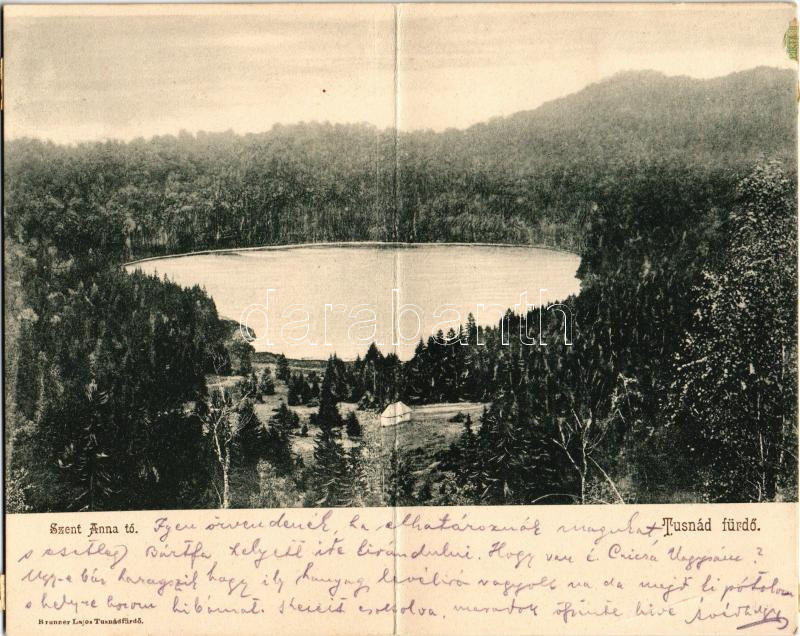 darabanth
Szent Anna tó.
Tusnád fürdő.
Igen örvendenék, ha elhatároznák magukat
s esetleg Bártfa helyett ide kirándulni. Hogy van é. Cnicsa Nagysám?
Ugy-e bár haragszik hogy ily hanyag levélíró vagyok na da majd ki pótolom
s helyre hozom hibámat. Kezeit csókolva, maradok őszinte híve
Brunner Lajos Tusnádfürdő.